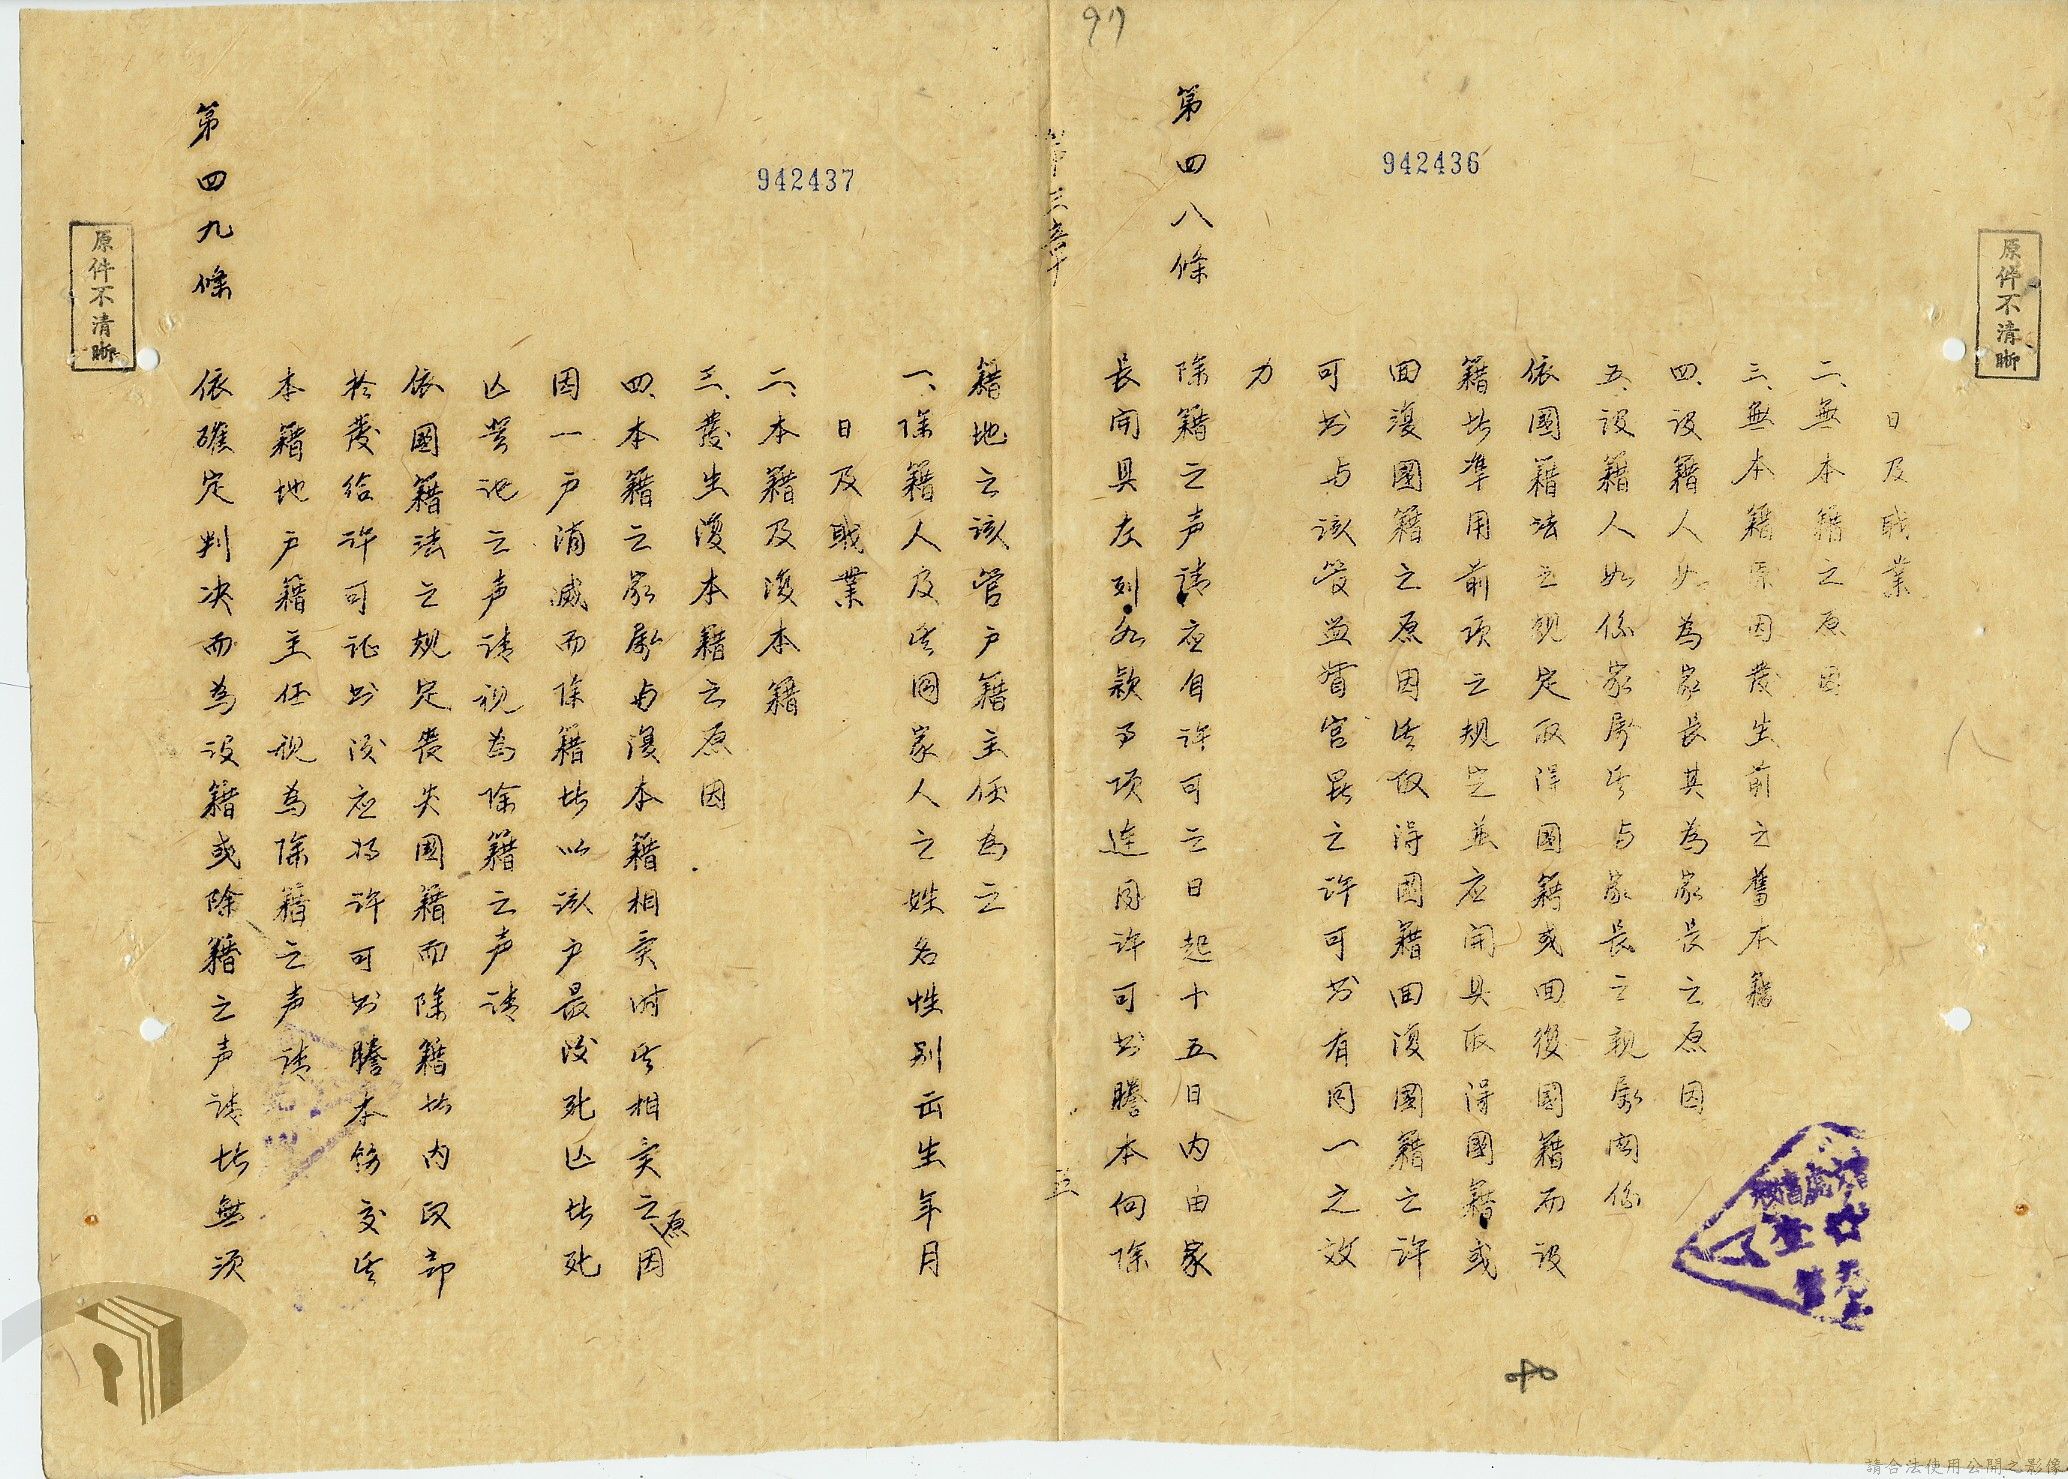 97
942436
原件不清晰
日及職業
二、無本籍之原因
三、無本籍原因發生前之舊本籍
四、設籍人如為家長其為家長之原因
五、設籍人如係家屬其与家長之親屬関係
依國籍法之規定取得國籍或回復國籍而設
籍者準用前項之規定並應開具取得國籍或
回復國籍之原因其取得國籍回復國籍之許
可书与該管監督官署之許可书有同一之效
力
第四八條
除籍之声請应自許可之日起十五日内由家
長開具左列各款事項連同許可书謄本向除
第三章
五
942437
籍地之該管户籍主任為之
一、除籍人及其同家人之姓名性別出生年月
日及職業
二、本籍及復本籍
三、發生復本籍之原因
四、本籍之家屬与復本籍相異时其相異之原因
因一户消滅而除籍者以該户最後死亡者死
亡登记之声請視為除籍之声請
依國籍法之規定喪失國籍而除籍者内政部
於發给許可证书後应将許可书謄本飭交其
本籍地户籍主任視為除籍之声請
第四九條
依確定判决而為設籍或除籍之声請者無須
原件不清晰
請合法使用公開之影像